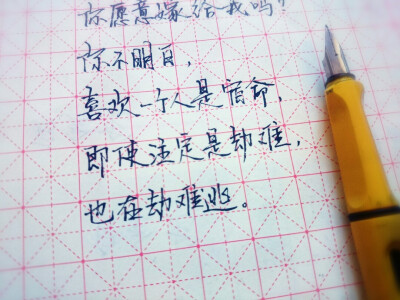 你愿意嫁给我吗？
你不明白，
喜欢一个人是宿命，
即使注定是劫难，
也在劫难逃。